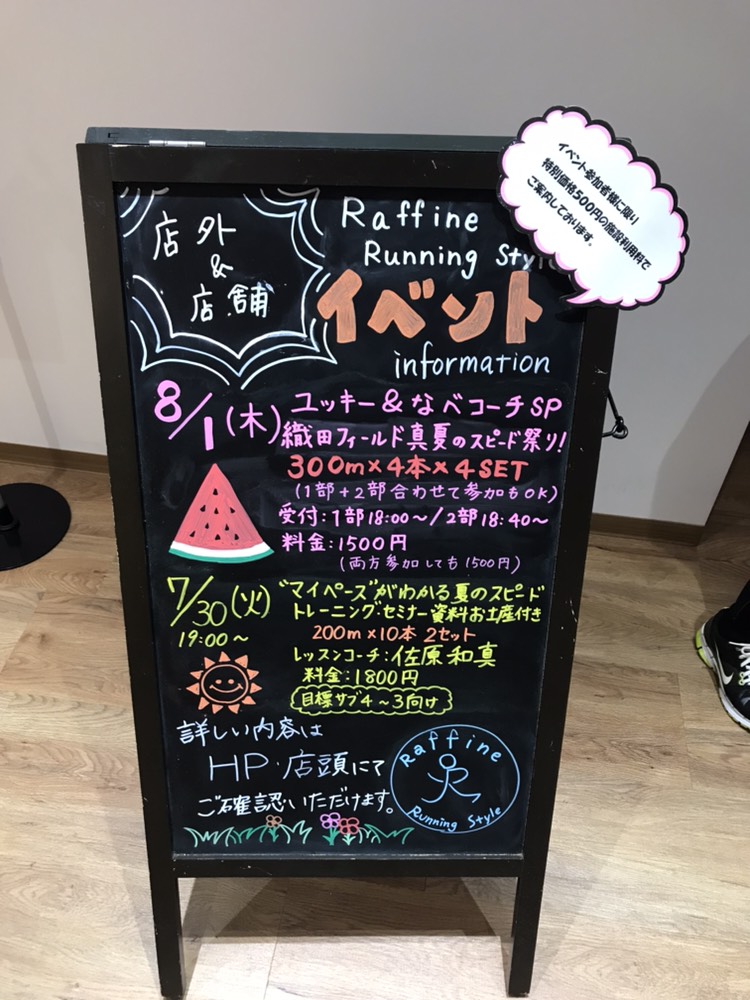 イベント参加者様に限り
特別価格500円の施設利用料で
ご案内しております。
店外
&
店舗
Raffine
Running Style
イベント
information
8/1(木)
ユッキー&なべコーチSP
織田フィールド真夏のスピード祭り!
300m×4本×4SET
(1部+2部合わせて参加もOK)
受付:1部18:00~/2部18:40~
料金:1500円
(両方参加しても1500円)
7/30(火)
19:00~
"マイペース"がわかる夏のスピード
トレーニング・セミナー資料お土産付き
200m×10本 2セット
レッスンコーチ:佐原和真
料金:1800円
目標サブ4~3向け
詳しい内容は
HP・店頭にて
ご確認いただけます。
Raffine
R
Running Style